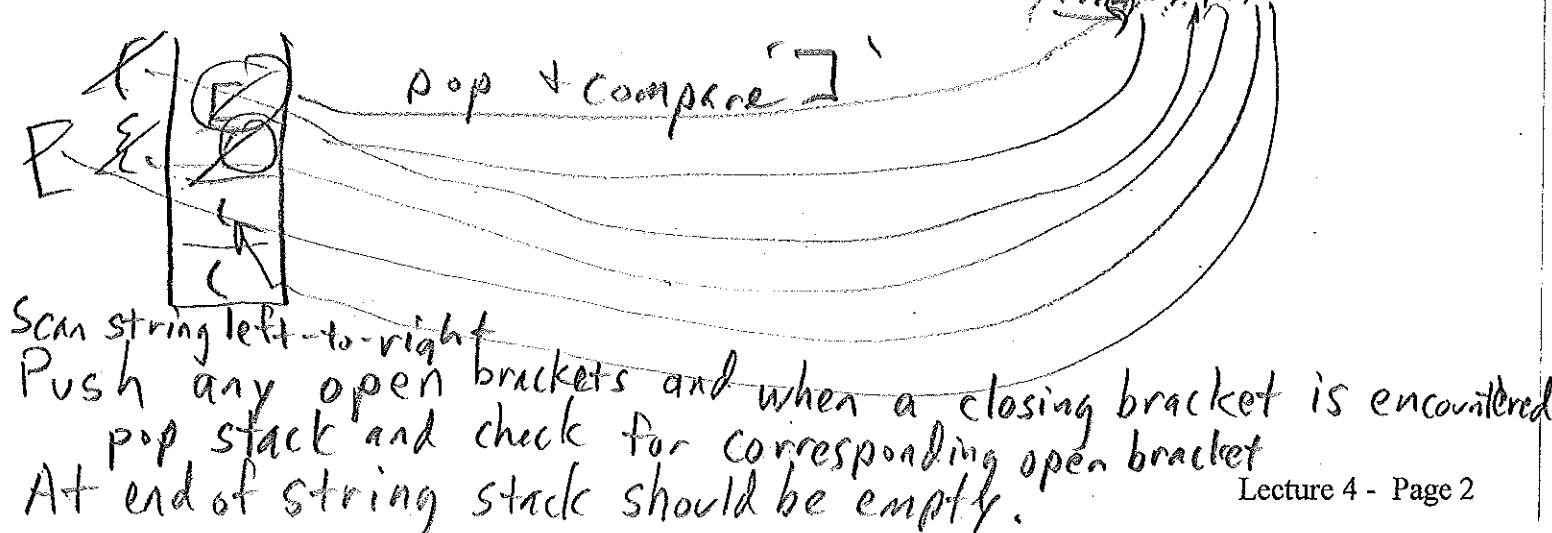 pop + compare ']'
[
(
(
Scan string left-to-right
Push any open brackets and when a closing bracket is encountered
pop stack and check for corresponding open bracket
At end of string stack should be empty.
Lecture 4 - Page 2